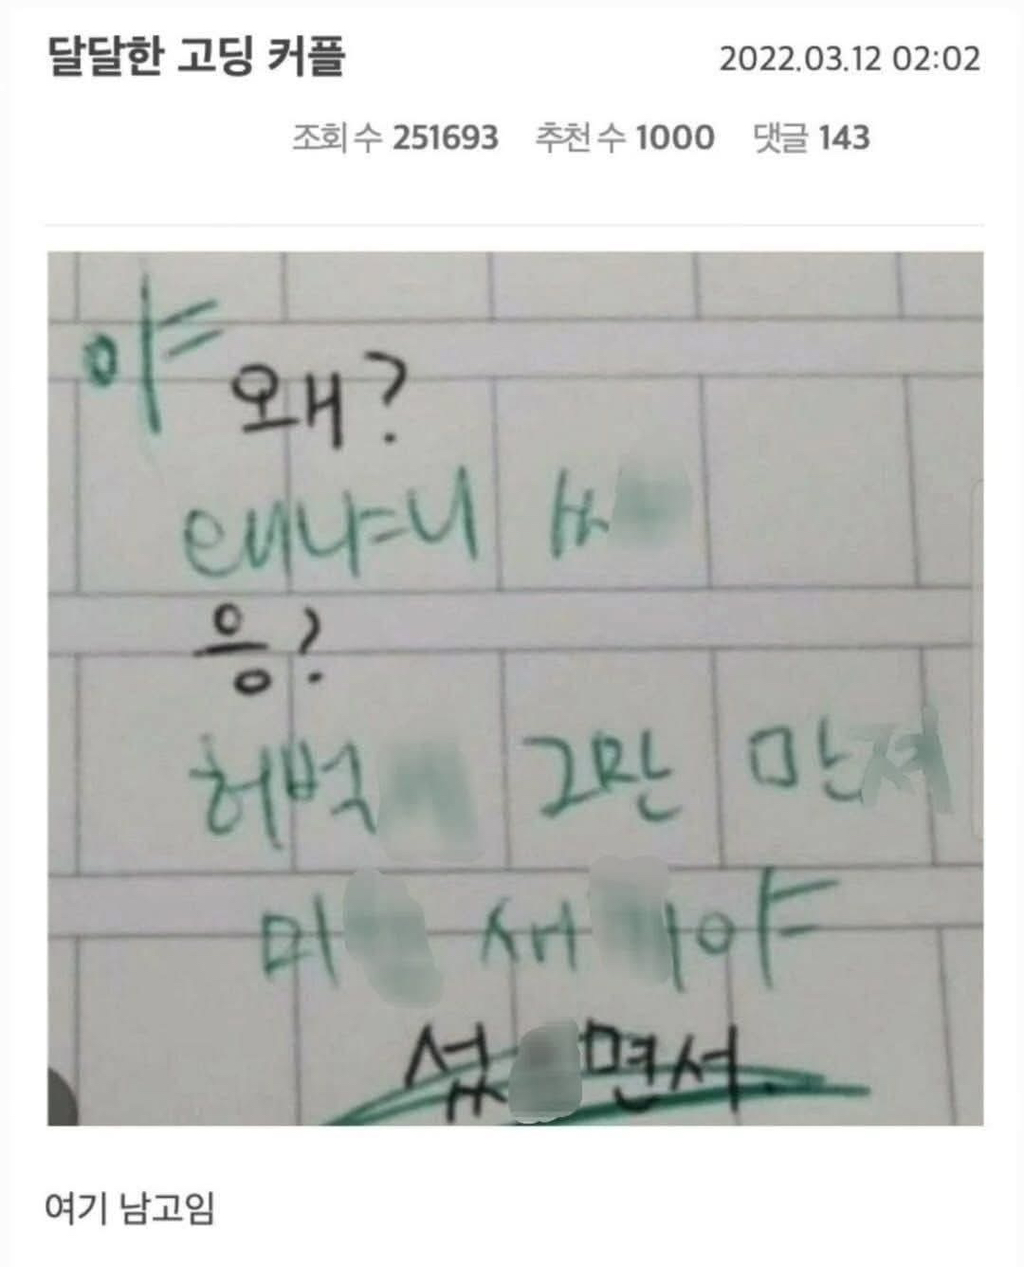 달달한 고딩 커플
2022.03.12 02:02
조회 수 251693 추천 수 1000 댓글 143
야 왜?
왜냐니
응?
허벅 그만 만져
미
새 야
면서
여기 남고임